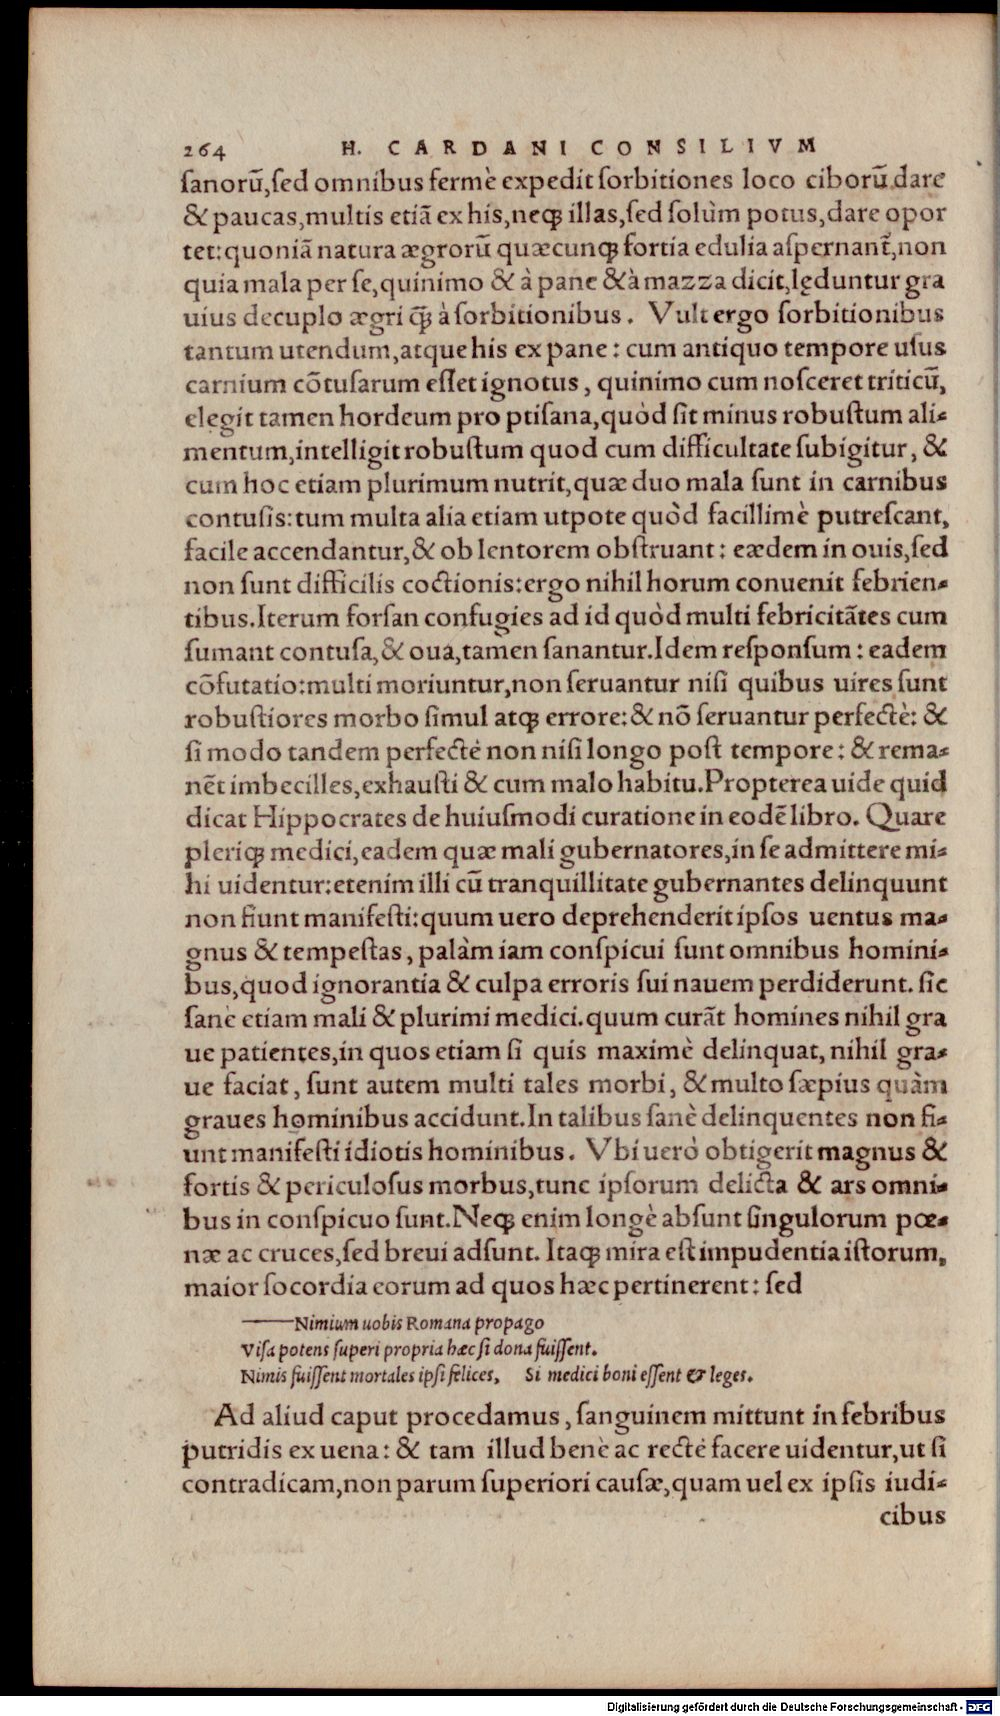 264 H. CARDANI CONSILIVM
ſanorũ,ſed omnibus fermè expedit ſorbitiones loco ciborũ dare
& paucas,multis etiã ex his,neqꝫ illas,ſed ſolùm potus,dare opor
tet:quoniã natura ægrorũ quæcunqꝫ fortia edulia aſpernant̃,non
quia mala per ſe,quinimo & à pane & à mazza dicit,lęduntur gra
uius decuplo ægri q̃ꝫ à ſorbitionibus. Vult ergo ſorbitionibus
tantum utendum,atque his ex pane: cum antiquo tempore uſus
carnium cõtuſarum eſſet ignotus, quinimo cum noſceret triticũ,
elegit tamen hordeum pro ptiſana,quòd ſit minus robuſtum ali-
mentum,intelligit robuſtum quod cum difficultate ſubigitur, &
cum hoc etiam plurimum nutrit,quæ duo mala ſunt in carnibus
contuſis:tum multa alia etiam utpote quòd facillimè putreſcant,
facile accendantur,& ob lentorem obſtruant: eædem in ouis,ſed
non ſunt difficilis coctionis:ergo nihil horum conuenit febrien-
tibus.Iterum forſan confugies ad id quòd multi febricitãtes cum
ſumant contuſa,& oua,tamen ſanantur.Idem reſponſum: eadem
cõfutatio:multi moriuntur,non ſeruantur niſi quibus uires ſunt
robuſtiores morbo ſimul atqꝫ errore:& nõ ſeruantur perfectè: &
ſi modo tandem perfectè non niſi longo poſt tempore: & rema-
nẽt imbecilles,exhauſti & cum malo habitu.Propterea uide quid
dicat Hippocrates de huiuſmodi curatione in eodẽ libro. Quare
pleriqꝫ medici,eadem quæ mali gubernatores,in ſe admittere mi-
hi uidentur:etenim illi cũ tranquillitate gubernantes delinquunt
non fiunt manifeſti:quum uero deprehenderit ipſos uentus ma-
gnus & tempeſtas, palàm iam conſpicui ſunt omnibus homini-
bus,quod ignorantia & culpa erroris ſui nauem perdiderunt. ſic
ſanè etiam mali & plurimi medici.quum curãt homines nihil gra
ue patientes,in quos etiam ſi quis maximè delinquat, nihil gra-
ue faciat, ſunt autem multi tales morbi, & multo ſæpius quàm
graues hominibus accidunt.In talibus ſanè delinquentes non fi-
unt manifeſti idiotis hominibus. Vbi uerò obtigerit magnus &
fortis & periculoſus morbus,tunc ipſorum delicta & ars omni-
bus in conſpicuo ſunt.Neqꝫ enim longè abſunt ſingulorum pœ-
næ ac cruces,ſed breui adſunt. Itaqꝫ mira eſt impudentia iſtorum,
maior ſocordia eorum ad quos hæc pertinerent: ſed
——Nimium uobis Romana propago
Viſa potens ſuperi propria hæc ſi dona fuiſſent.
Nimis fuiſſent mortales ipſi felices, Si medici boni eſſent & leges.
Ad aliud caput procedamus, ſanguinem mittunt in febribus
putridis ex uena: & tam illud benè ac rectè facere uidentur,ut ſi
contradicam,non parum ſuperiori cauſæ,quam uel ex ipſis iudi-
cibus
Digitalisierung gefördert durch die Deutsche Forschungsgemeinschaft - DFG